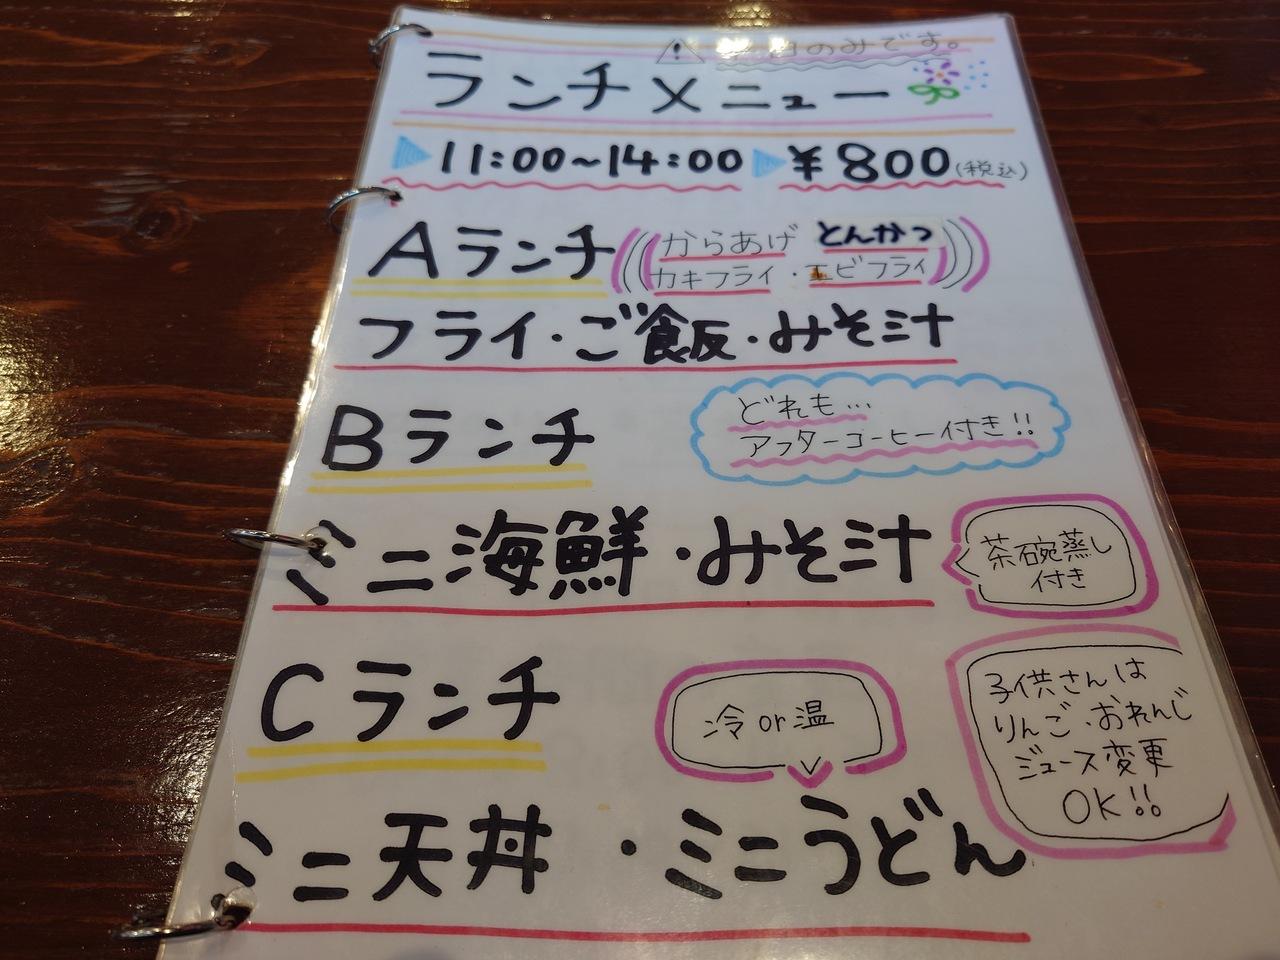 のみです。
ランチメニュー
11:00~14:00 ¥800(税込)
Aランチ からあげ とんかつ
カキフライ・エビフライ
フライ・ご飯・みそ汁
Bランチ
どれも…
アフターコーヒー付き!!
ミニ海鮮・みそ汁
茶碗蒸し
付き
Cランチ
冷or温
子供さんは
りんご・おれんじ
ジュース変更
OK!!
ミニ天丼・ミニうどん